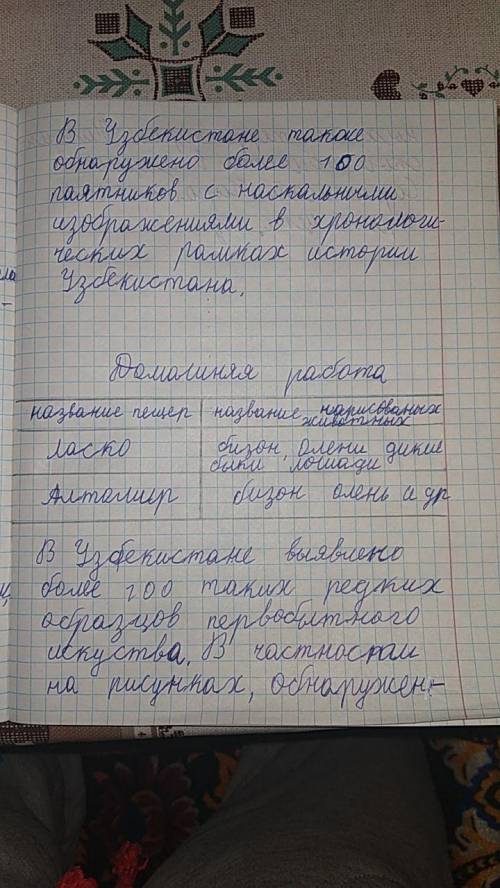 В Узбекистане также
обнаружено более 100
паятников с наскальными
изображениями в хронологи-
ческих рамках истории
Узбекистана.
Домашняя работа
название пещер название нарисованых животных
Ласко бизон, олени дикие быки лошади
Алтамир бизон олень и др
В Узбекистане выявлено
более 100 таких редких
образцов первобытного
искуства. В частности
на рисунках, обнаружен-